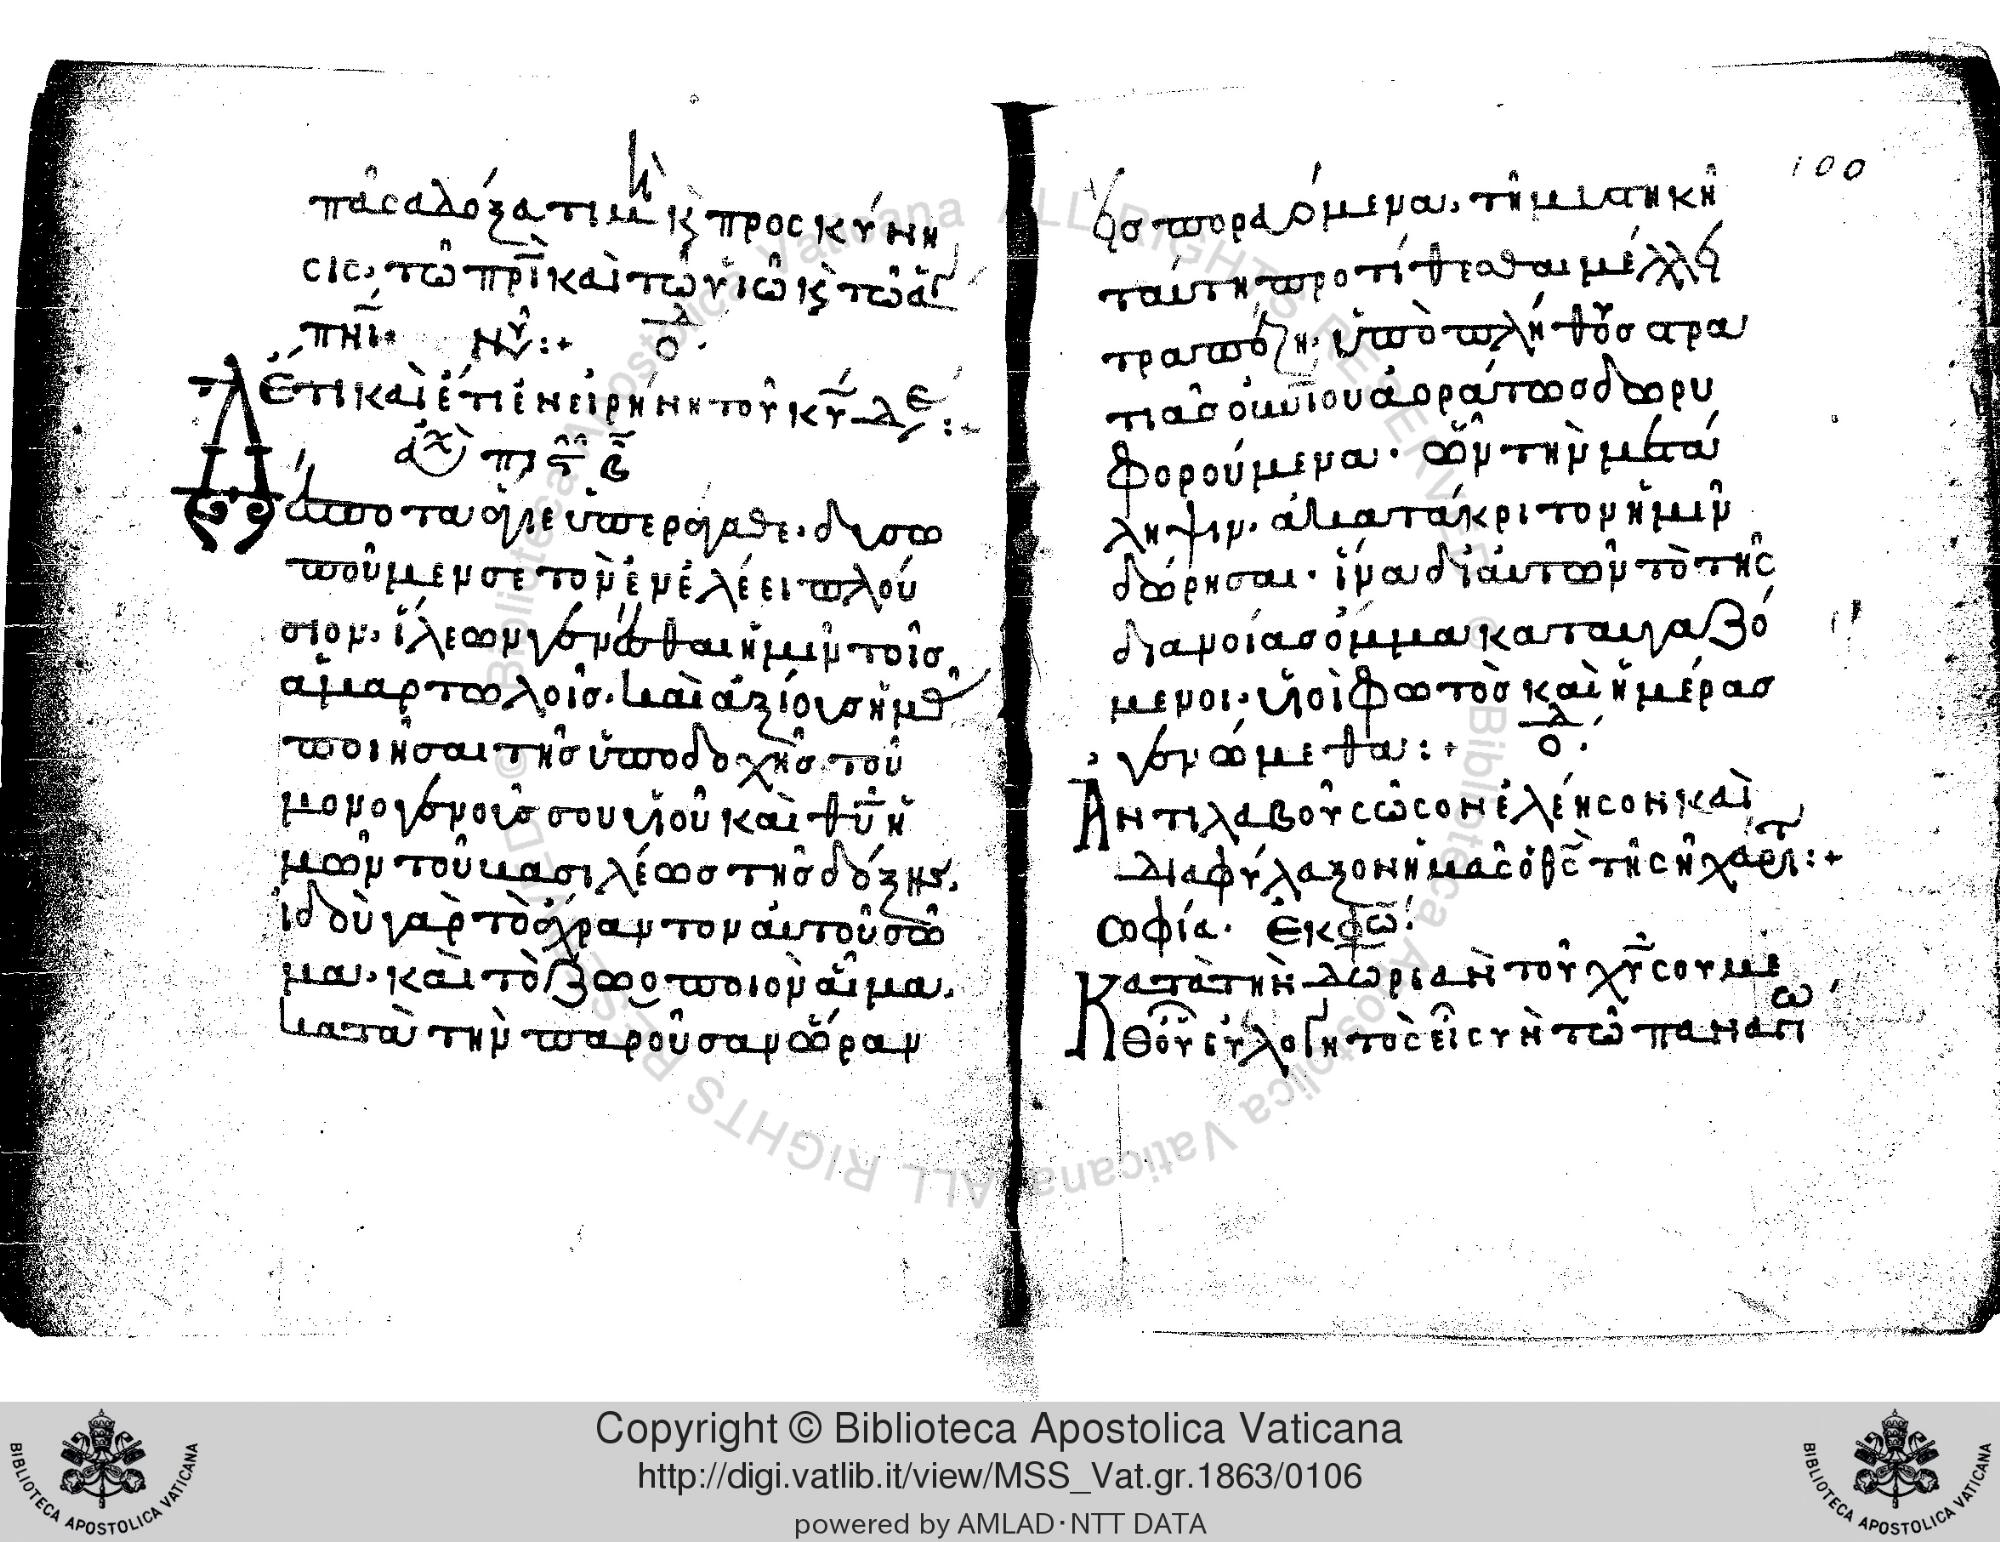 πᾶσα δόξα τιμὴ κ προσκύνη
σις, τῶ πρὶ καὶ τῶ υἱῶ κ τῶ ἁγ
πνι. νῦ :+ ὁ λ
Ἔτι καὶ ἔτι ἐν εἰρήνη τοῦ κυ δε :
εὐχ πιστ β
Δέσποτα ἅγιε ὑπεράγαθε. δυσω
ποῦμεν σε τὸν ἐν ἐλέει πλού
σιον. ἵλεων γενέσθαι ἡμῖν τοῖς
ἁμαρτωλοῖς. καὶ ἀξίους ἡμᾶς
ποιῆσαι τῆς ὑποδοχῆς τοῦ
μονογενοῦς σου υἱοῦ καὶ θυ ἡ
μῶν τοῦ βασιλέως τῆς δόξης.
ἰδοὺ γὰρ τὸ ἄχραντον αὐτοῦ σῶ
μα. καὶ τὸ ζωοποιὸν αἷμα.
κατὰ τὴν παροῦσαν ὥραν
100
εἰσπορευόμενα. τῆ μυστικῆ
ταύτη προτίθεσθαι μέλλει
τραπέζη. ὑπὸ πλήθους στρα
τιᾶς οὐνίου ἀοράτως δορυ
φορούμενα. ὧν τὴν μετά
ληψιν. ἀκατάκριτον ἡμῖν
δώρησαι. ἵνα δι' αὐτῶν τὸ τῆς
διανοίας ὄμμα καταυγαζό
μενοι. υἱοὶ φωτὸς καὶ ἡμέρας
γενώμεθα :+ ὁ λ
Ἀντιλαβοῦ σῶσον ἐλέησον καὶ
διαφύλαξον ἡμᾶς ὁ θς τῆ σῆ χάριτι :+
σοφία. ἐκφώ
Κατὰ τὴν δωρεὰν τοῦ χυ σου με
θ' οὗ εὐλογητὸς εἶ σὺν τῶ παναγίω
Copyright © Biblioteca Apostolica Vaticana
http://digi.vatlib.it/view/MSS_Vat.gr.1863/0106
powered by AMLAD·NTT DATA
BIBLIOTECA APOSTOLICA VATICANA
BIBLIOTECA APOSTOLICA VATICANA